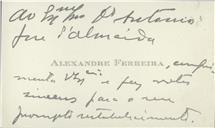 Ao Exmo Dr Antonio
José d'Almeida
ALEXANDRE FERREIRA, cumpri
menta V Excia e faz votos
sinceros para o seu
prompto restabelecimento.